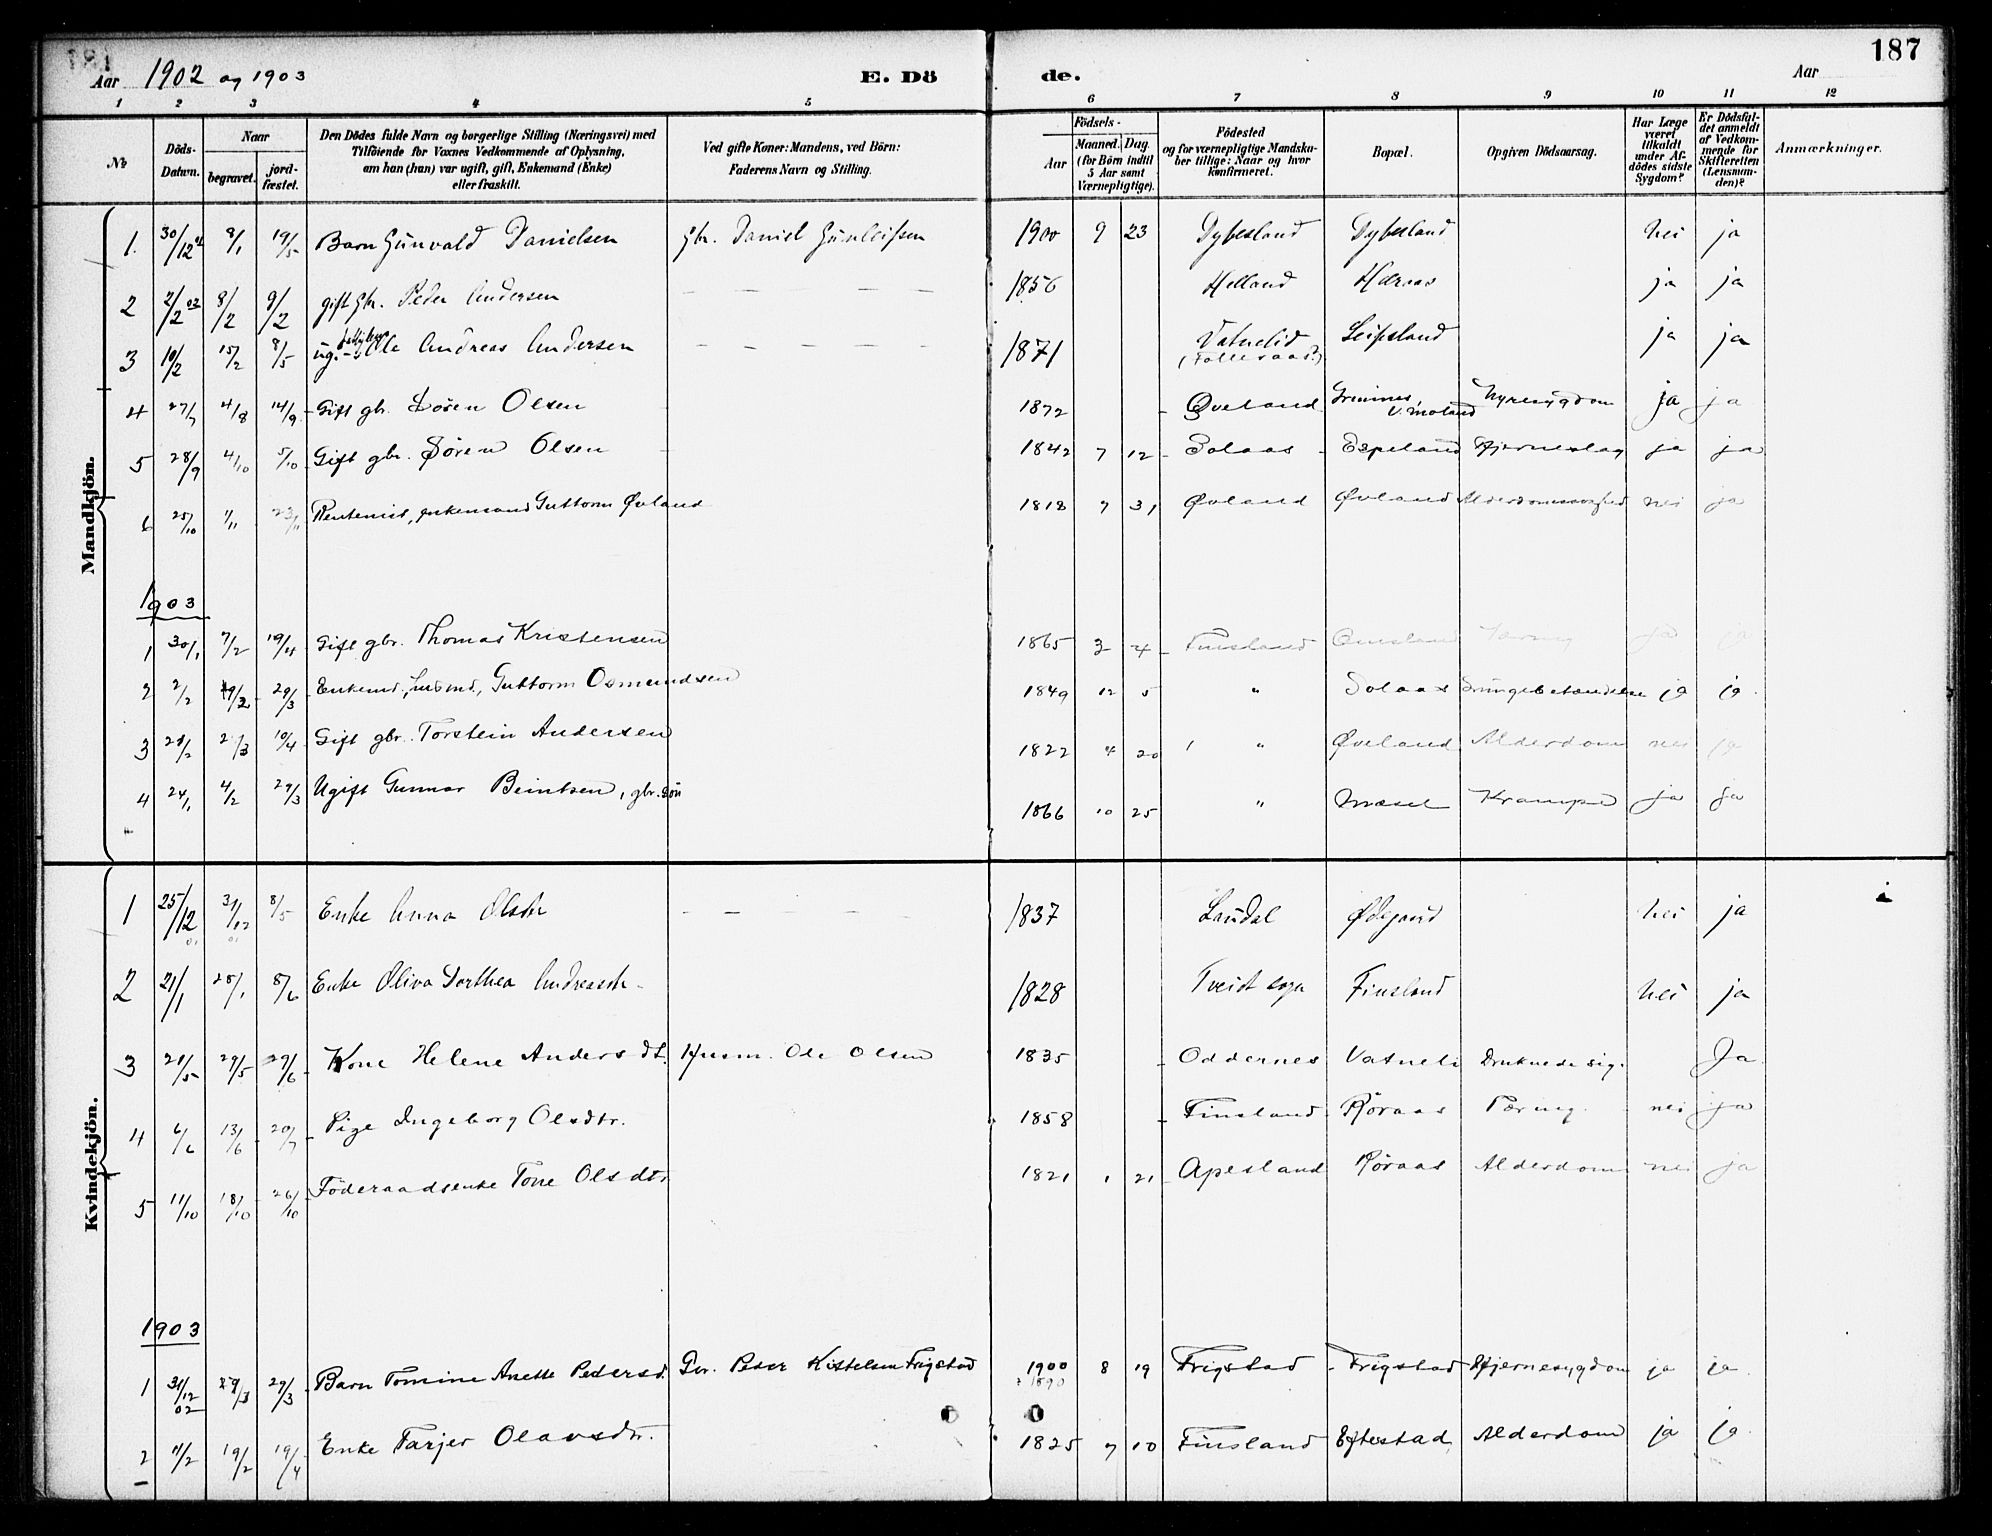 187
Aar 1902 og 1903 E. Dö de. Aar
1 2 3 4 5 6 7 8 9 10 11 12
№ Döds-Datum. Naar begravet. jord-fæstet. Den Dödes fulde Navn og borgerlige Stilling (Næringsvei) med Tilföiende for Voxnes Vedkommende af Oplysning, om han (hun) var ugift, gift, Enkemand (Enke) eller fraskilt. Ved gifte Koner: Mandens, ved Börn: Faderens Navn og Stilling. Födsels- Aar Maaned. Dag. (for Börn indtil 5 Aar samt Værnepligtige). Födested og for værnepligtige Mandskaber tillige: Naar og hvor konfirmeret. Bopæl. Opgiven Dödsaarsag. Har Læge været tilkaldt under Afdödes sidste Sygdom? Er Dödsfaldet anmeldt af Vedkommende for Skifteretten (Lensmanden)? Anmærkninger.
Mandkjön.
1. 30/12 01 8/1 19/5 Barn Gunvald Danielsen Gbr. Daniel Gunleifsen 1900 9 23 Dybesland Dybesland nei ja
2 2/2 02 8/2 9/2 gift gbr. Peder Andersen — — — — — 1856 Helland ja ja
3 10/2 15/2 8/5 ug. Ole Andreas Andersen — — — — — 1871 Vatnelid Leifsland ja ja
4 27/7 4/8 14/9 Gift gbr. Sören Olsen 1872 Øveland Nyresygdom ja ja
5 28/9 4/10 5/10 Gift gbr. Sören Olsen 1842 7 12 Solaas Espeland Hjerneslag ja ja
6 25/10 1/11 23/11 Rentenist, enkemand Guttorm Øvland 1818 7 31 Øvland Øvland Alderdomssvaghed nei ja
1903
1 30/1 7/2 19/4 Gift gbr. Thomas Kristensen 1865 3 4 Finsland Tæring ja ja
2 2/2 29/3 Enkemd., husmd., Guttorm Osmundsen 1849 12 5 " Solaas Lungebetændelse ja ja.
3 10/4 Gift gbr. Torstein Andersen 1822 4 20 " Øveland Alderdom nei ja
4 24/1 4/2 29/3 Ugift Gunnar Beintsen, gbr. sön 1866 10 25 " Mæsel Krampe ja ja
Kvindekjön.
1 25/12 01 31/12 01 8/5 Enke Anna Olsdtr — — — — — 1837 Laudal Ødegaard nei ja
2 21/1 28/1 8/6 Enke Oliva Dorthea Andreasdtr. 1828 Tveidt sogn Finsland nei ja
3 21/5 29/5 29/6 Kone Helene Andersdt. Husm. Ole Olsen 1835 Oddernes Vatneli Druknede sig. Ja.
4 6/6 13/6 20/7 Pige Ingeborg Olsdtr. 1858 Finsland Röraas Tæring. nei ja
5 11/10 18/10 26/10 Föderaadsenke Tone Olsdtr 1821 1 21 Apesland Röraas Alderdom nei ja
1903
1 31/12 02 29/3 29/3 Barn Tomine Anette Pedersd. Gbr. Peder Kittelsen Frigstad 1900 8 19 Frigstad Frigstad Hjernesygdom ja ja.
2 11/2 19/2 19/4 Enke Tarjer Olavsdtr. 1825 7 10 Finsland Eftestad Alderdom ja ja.